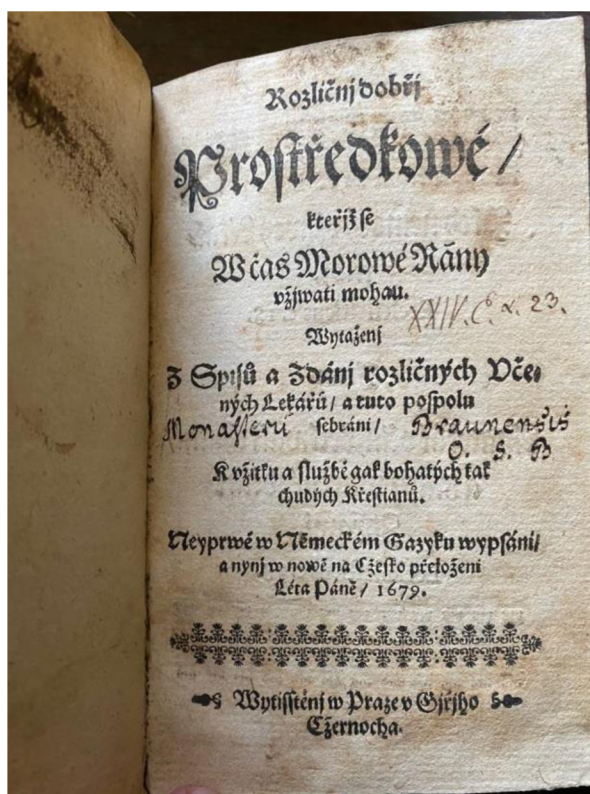 Rozličnj dobřj
Prostředkowé /
kteřjž se
W čas Morowé Rány
vžjwati mohau.
XXIV. C. α. 23.
Wytaženj
Z Spisů a Zdánj rozličných Vče-
ných Lekářů / a tuto pospolu
Monasterii sebráni / Braunensis
O. S. B
K vžitku a službě gak bohatých tak
chudých Křestianů.
Neyprwé w Německém Gazyku wypsáni /
a nynj w nowě na Cžesko přeloženi
Léta Páně / 1679.
Wytisstěnj w Praze v Gjřjho
Cžernocha.